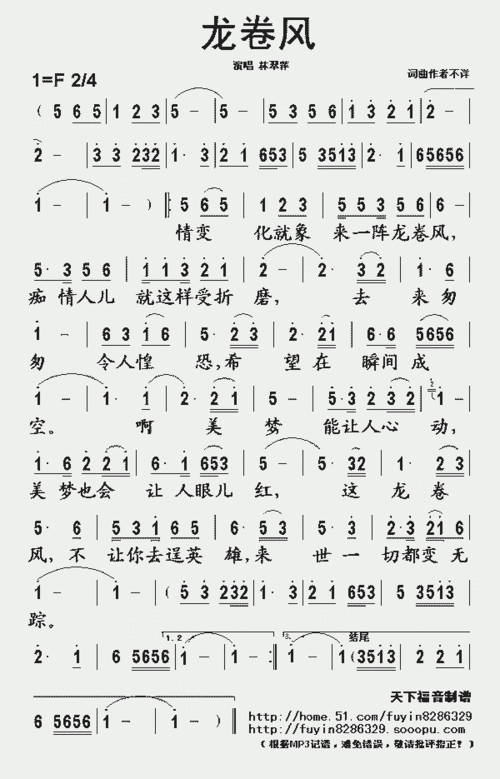 龙卷风
演唱 林翠萍
1=F 2/4
词曲作者不详
( 5 6 5 | 1 2 3 | 5 - | 5 - | 5 6 5 | 1 3 2 1 | 2 -
2 - | 3 3 232 | 1· 3 | 2 1 653 | 5 3513 | 2· 1 | 65656
1 - | 1 - ) |: 5 6 5 | 1 2 3 | 5 5 3 5 | 6 - |
情变 化就象 来一阵龙卷风,
5· 3 5 6 | 1 1 3 2 1 | 2· - | 2· 3 2 | 1· 6
痴 情人儿 就这样受折 磨, 去 来匆
1 - | 6 3 1 6 | 5· 2 3 | 2· 21 | 6· 6 | 5656
匆 令人惶 恐,希 望在 瞬间 成
1 - | 1 - | 2· 2 1 | 5 - | 5·3 2 3 2 | 1 -
空。 啊 美 梦 能让人心 动,
1· 6 2 2 1 | 3· 6 | 1 653 | 5 - | 5· 3 | 2 3
美 梦也会 让 人眼儿 红, 这 龙 卷
5· 6 | 5 3 1 6 5 | 6· 5 3 | 5 - | 2· 3 21 6
风,不 让你去逞英 雄,来 世一 切都变 无
1 - | 1 - ( | 5 3 2 3 | 2 1 653 | 5 3513 |
踪。
1. 2.
3.
结尾
2· 1 | 6 5656 | 1 - | 1 - :| 1 - | 1 (3513 | 2 2 1
6 5656 | 1 - | 1 - ) ||
天下福音制谱
http://home.51.com/fuyin8286329
http://fuyin8286329.sooopu.com
( 根据MP3记谱，难免错误，敬请批评指正! )